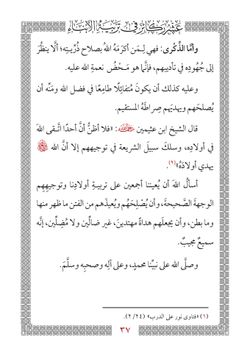 عشرون ركيزة في تربية الأبناء
وأمَّا الذِّكرى: فهي لِمَن أكرَمَهُ اللهُ بصلاحِ ذُرِّيتِه؛ ألَّا ينظُرَ
إلى جُهُودِه في تأديبِهم، فإنَّما هو مَحْضُ نعمةِ اللهِ عليه.
وعليه كذلك أن يكونَ مُتفائِلًا طامِعًا في فضلِ اللهِ ومَنِّه أن
يُصلحَهم ويهديَهم صِراطَهُ المستقيم.
قال الشيخ ابن عثيمين رحمه الله: «فلا أظنُّ أنَّ أحدًا اتَّقى اللهَ
في أولادِه، وسلكَ سبيلَ الشريعة في توجيههم إلا أنَّ الله ﷻ
يهدي أولادَهُ»(١).
أسألُ اللهَ أن يُعينَنا أجمعين على تربيةِ أولادِنا وتوجيهِهم
الوجهةَ الصَّحيحةَ، وأن يُصْلِحَهُم ويُعيذَهم من الفتنِ ما ظهر منها
وما بطن، وأن يجعلَهم هداةً مهتدينَ، غير ضالِّينَ ولا مُضِلِّينَ، إنَّه
سميعٌ مجيبٌ.
وصلَّى اللهُ على نبيِّنا محمدٍ، وعلى آلِهِ وصحبِه وسلَّمَ.
(١) «فتاوى نور على الدرب» (٢٤/ ٢).
٣٧